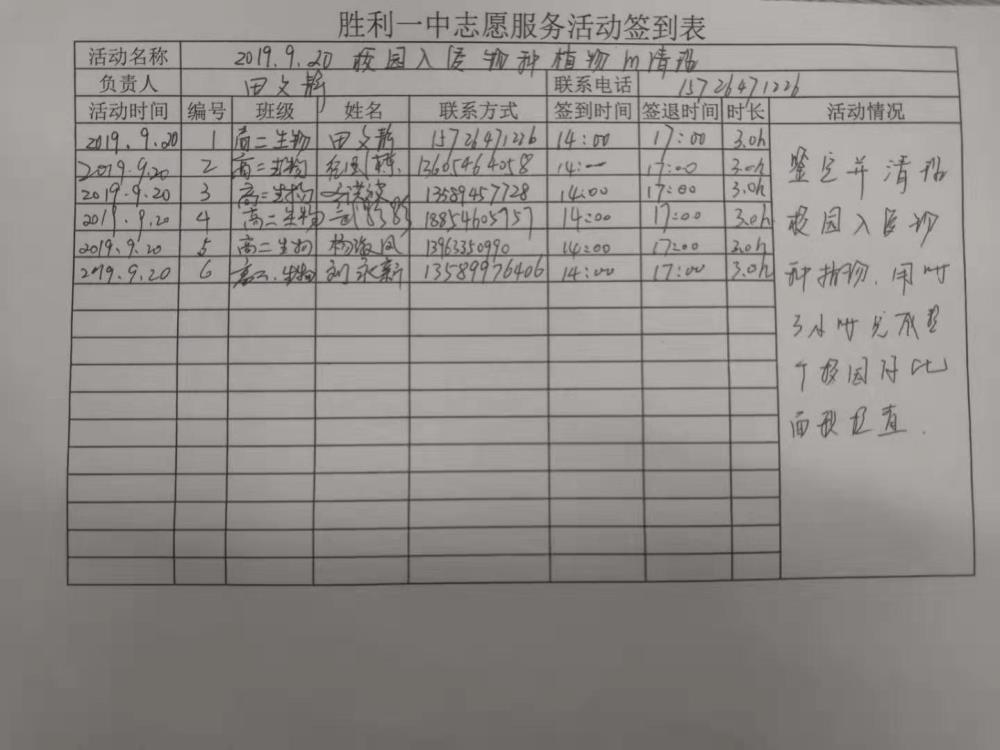 胜利一中志愿服务活动签到表
活动名称 2019.9.20 校园入侵物种植物的清理
负责人 田文静 联系电话 15726471226
活动时间 编号 班级 姓名 联系方式 签到时间 签退时间 时长 活动情况
2019.9.20 1 高二生物 田文静 15726471226 14:00 17:00 3.0h
2019.9.20 2 高二生物 13605464058 14:00 17:00 3.0h
2019.9.20 3 高二生物 13589457728 14:00 17:00 3.0h
2019.9.20 4 高二生物 18854605757 14:00 17:00 3.0h
2019.9.20 5 高二生物 杨海凤 13963350990 14:00 17:00 3.0h
2019.9.20 6 高二生物 刘永新 13589976406 14:00 17:00 3.0h
鉴定并清理
校园入侵物
种植物.用时
3小时完成整
个校园
面积